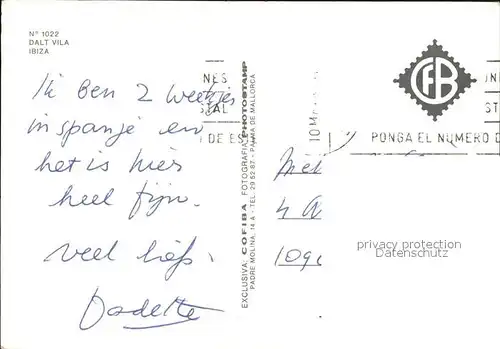 Nº 1022
DALT VILA
IBIZA
Ik ben 2 weekjes
in spanje en
het is hier
heel fijn.
veel liefs,
Dadette
EXCLUSIVA: COFIBA FOTOGRAFIA PHOTOSTAMP
PADRE MOLINA, 14 A - TEL. 29 52 87 - PALMA DE MALLORCA
CFB
NES
STAL
DE ES
10 M
ON
ST
PONGA EL NUMERO D
Me
4 A
109
privacy protection
Datenschutz